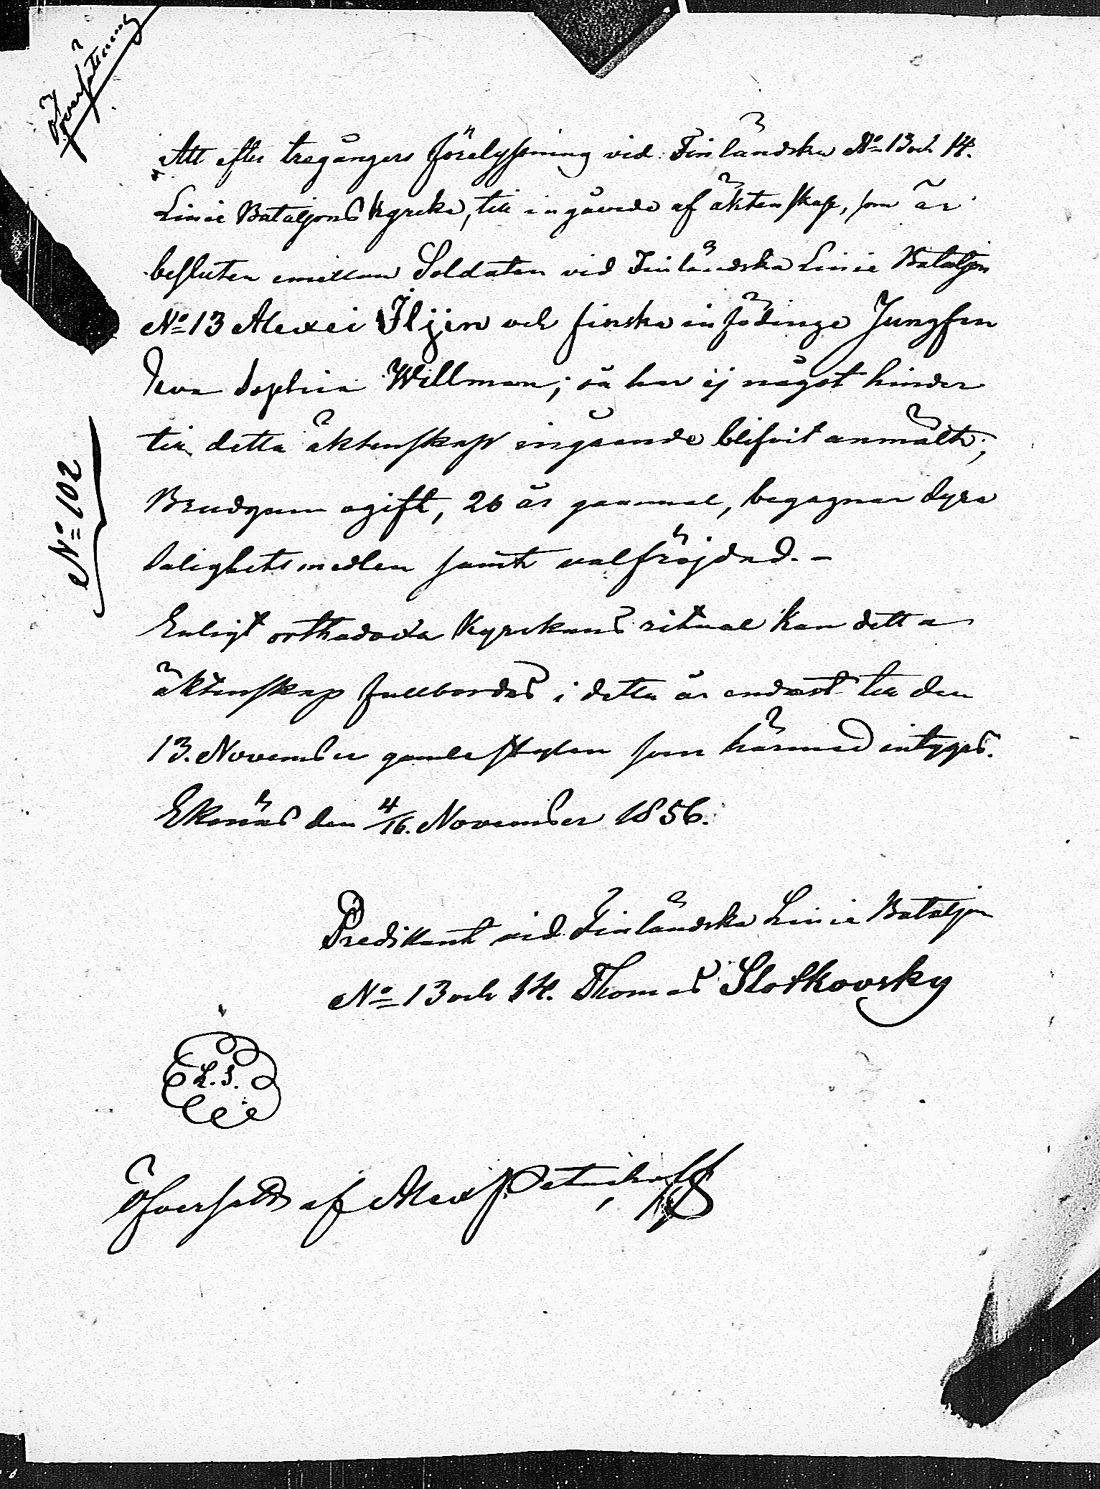 Öfversättning
Att efter tregångers förelysning vid Finländska No 13 och 14.
Linie Bataljons Kyrka, till ingående af äktenskap, som är
besluten emellan Soldaten vid Finländska Linie Bataljon
No 13 Alexei Iljin och finska infödinge Jungfrun
Eva Sophia Willman; så har ej något hinder
till detta äktenskaps ingående blifvit anmält;
Brudgum ogift, 26 år gammal, begagnar dyra
Salighetsmedlen samt välfräjdad. –
Enligt orthodoxa Kyrkans ritual kan detta
äktenskap fullbordas i detta år endast till den
13. November gamla stylen som härmed intygas.
Ekenäs den 4/16. November 1856.
No 102
Predikant vid Finländska Linie Bataljon
No 13 och 14. Thomas Slotkovsky
L. S.
Öfversatt af Alex